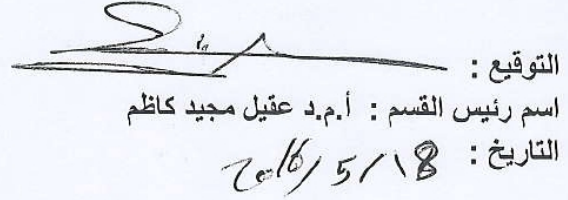 التوقيع :
اسم رئيس القسم : أ.م.د عقيل مجيد كاظم
التاريخ : 2016/5/18